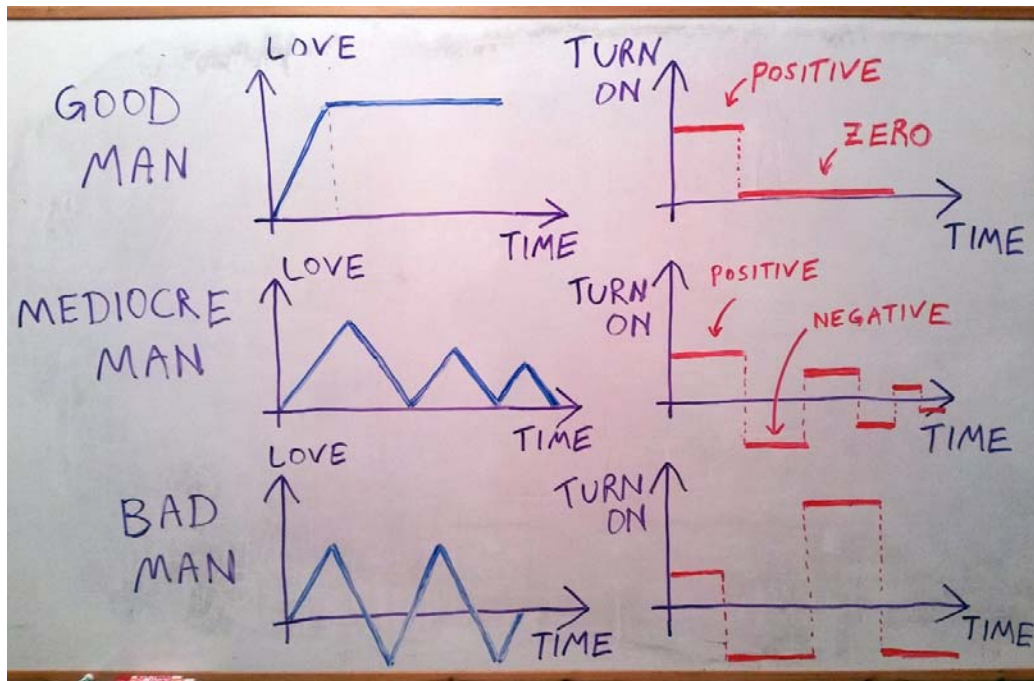 GOOD
MAN
LOVE
TIME
TURN
ON
POSITIVE
ZERO
TIME
MEDIOCRE
MAN
LOVE
TIME
TURN
ON
POSITIVE
NEGATIVE
TIME
BAD
MAN
LOVE
TIME
TURN
ON
TIME